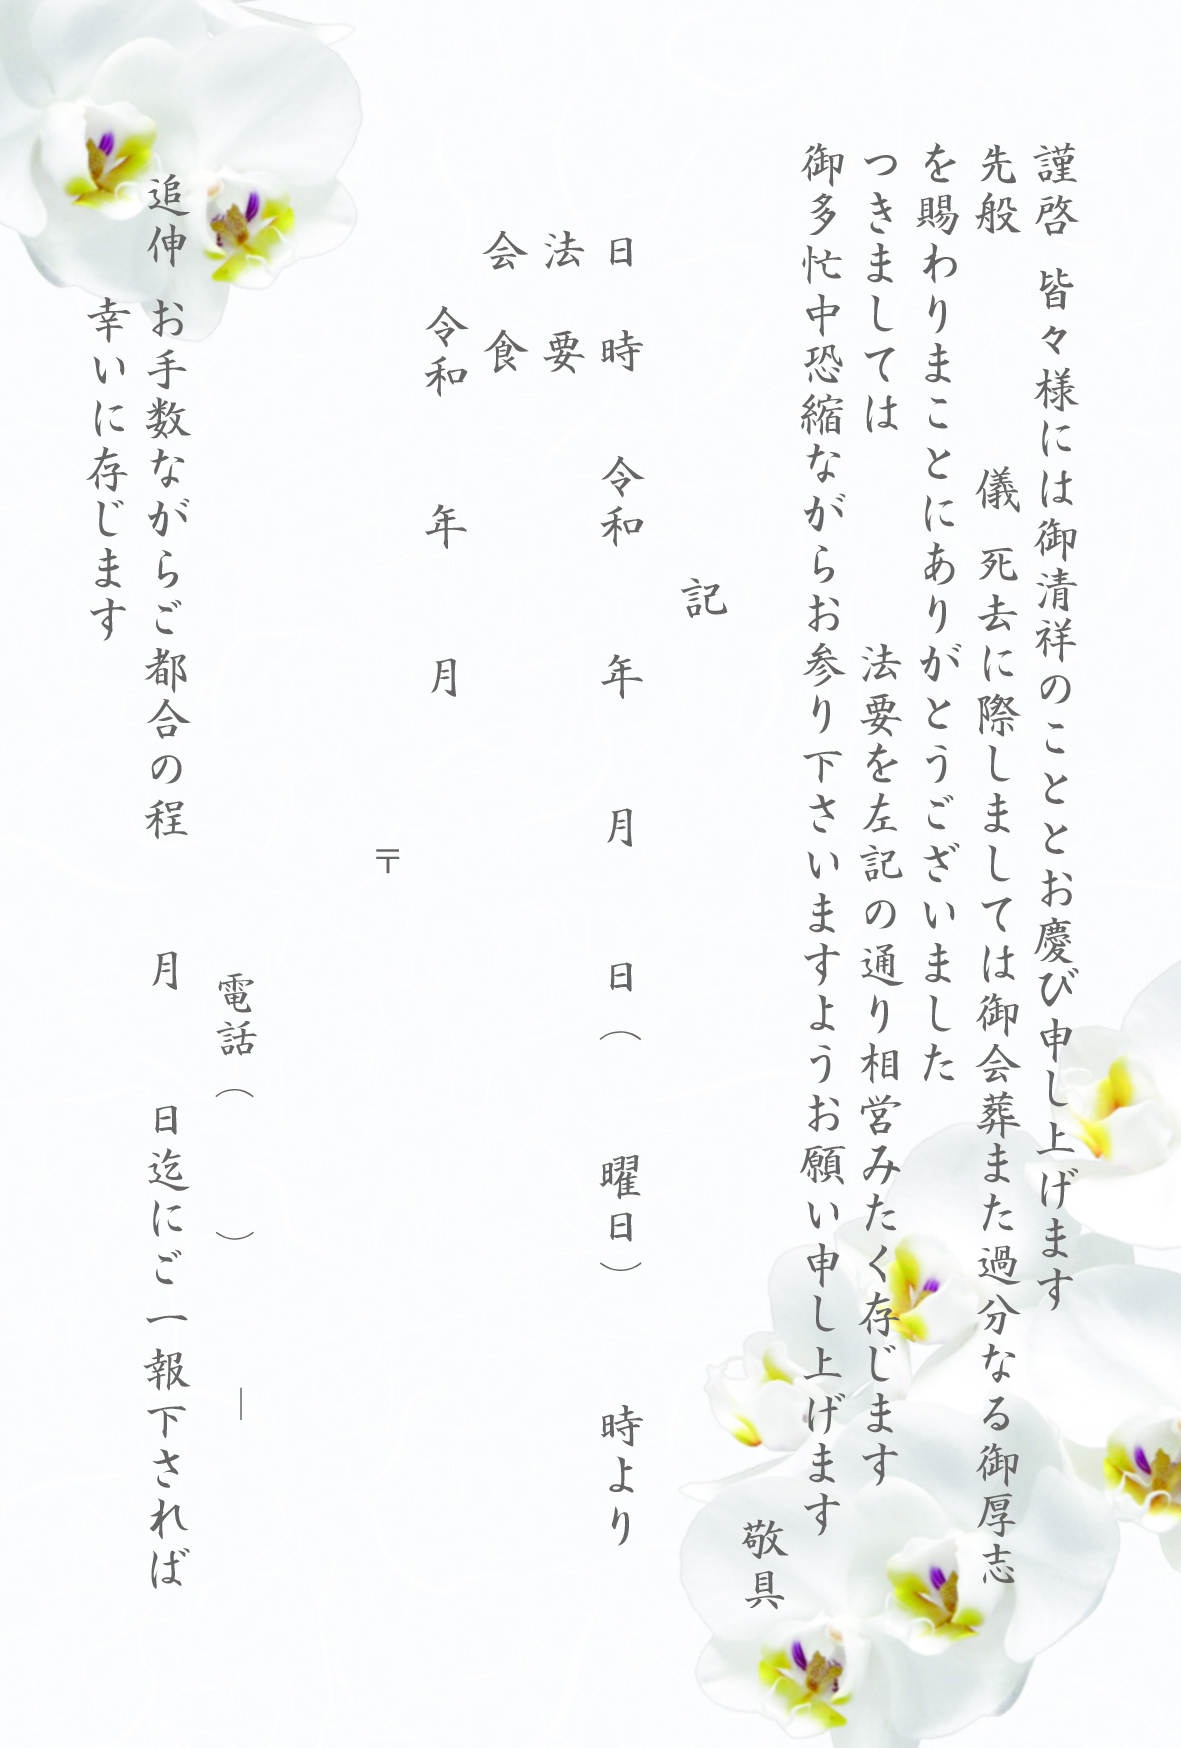 謹啓　皆々様には御清祥のこととお慶び申し上げます
先般　　　　　儀　死去に際しましては御会葬また過分なる御厚志
を賜わりまことにありがとうございました
つきましては　　　　法要を左記の通り相営みたく存じます
御多忙中恐縮ながらお参り下さいますようお願い申し上げます
敬具
記
日　時　　令和　　年　　月　　日（　　曜日）　　時より
法　要
会　食
令和　　年　　月
〒
電話（　　）　　―
追伸　お手数ながらご都合の程　　月　　日迄にご一報下されば
幸いに存じます